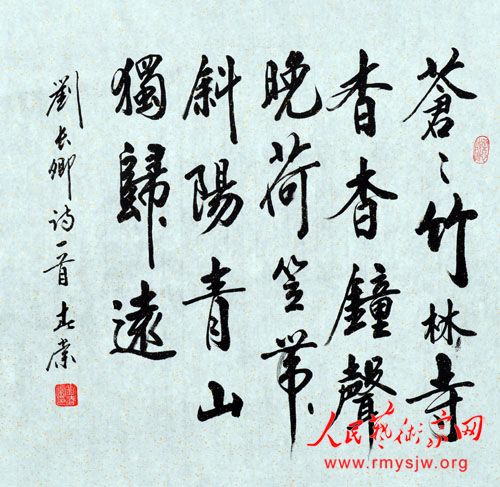 蒼〻竹林寺
杳杳鐘聲
晚荷笠帶
斜陽青山
獨歸遠
劉长卿诗一首
人民藝術家网
www.rmysjw.org